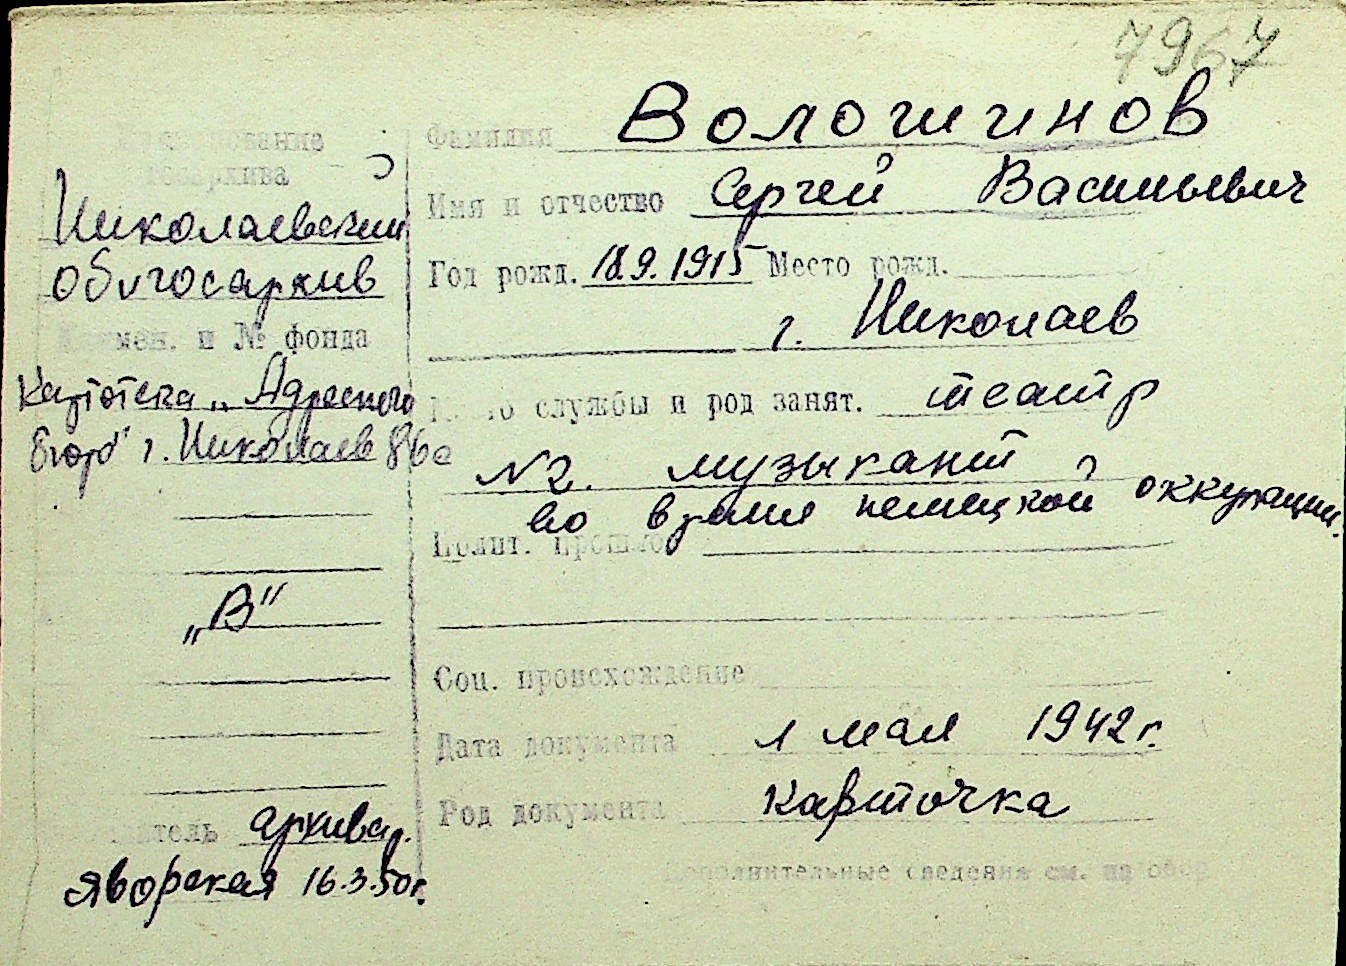 7967
Наименование
госархива
Николаевский
облгосархив
Наимен. и № фонда
Картотека „Адресного
бюро" г. Николаев
„В"
архивар.
Яворская 16.3.50г.
Фамилия Волошинов
Имя и отчество Сергей Васильевич
Год рожд. 18.9.1915 Место рожд.
г. Николаев
службы и род занят. театр
№2. музыкант
во время немецкой оккупации.
Полит. прошлое
Соц. происхождение
Дата документа 1 мая 1942г.
Род документа Карточка
Дополнительные сведения см. на обор.